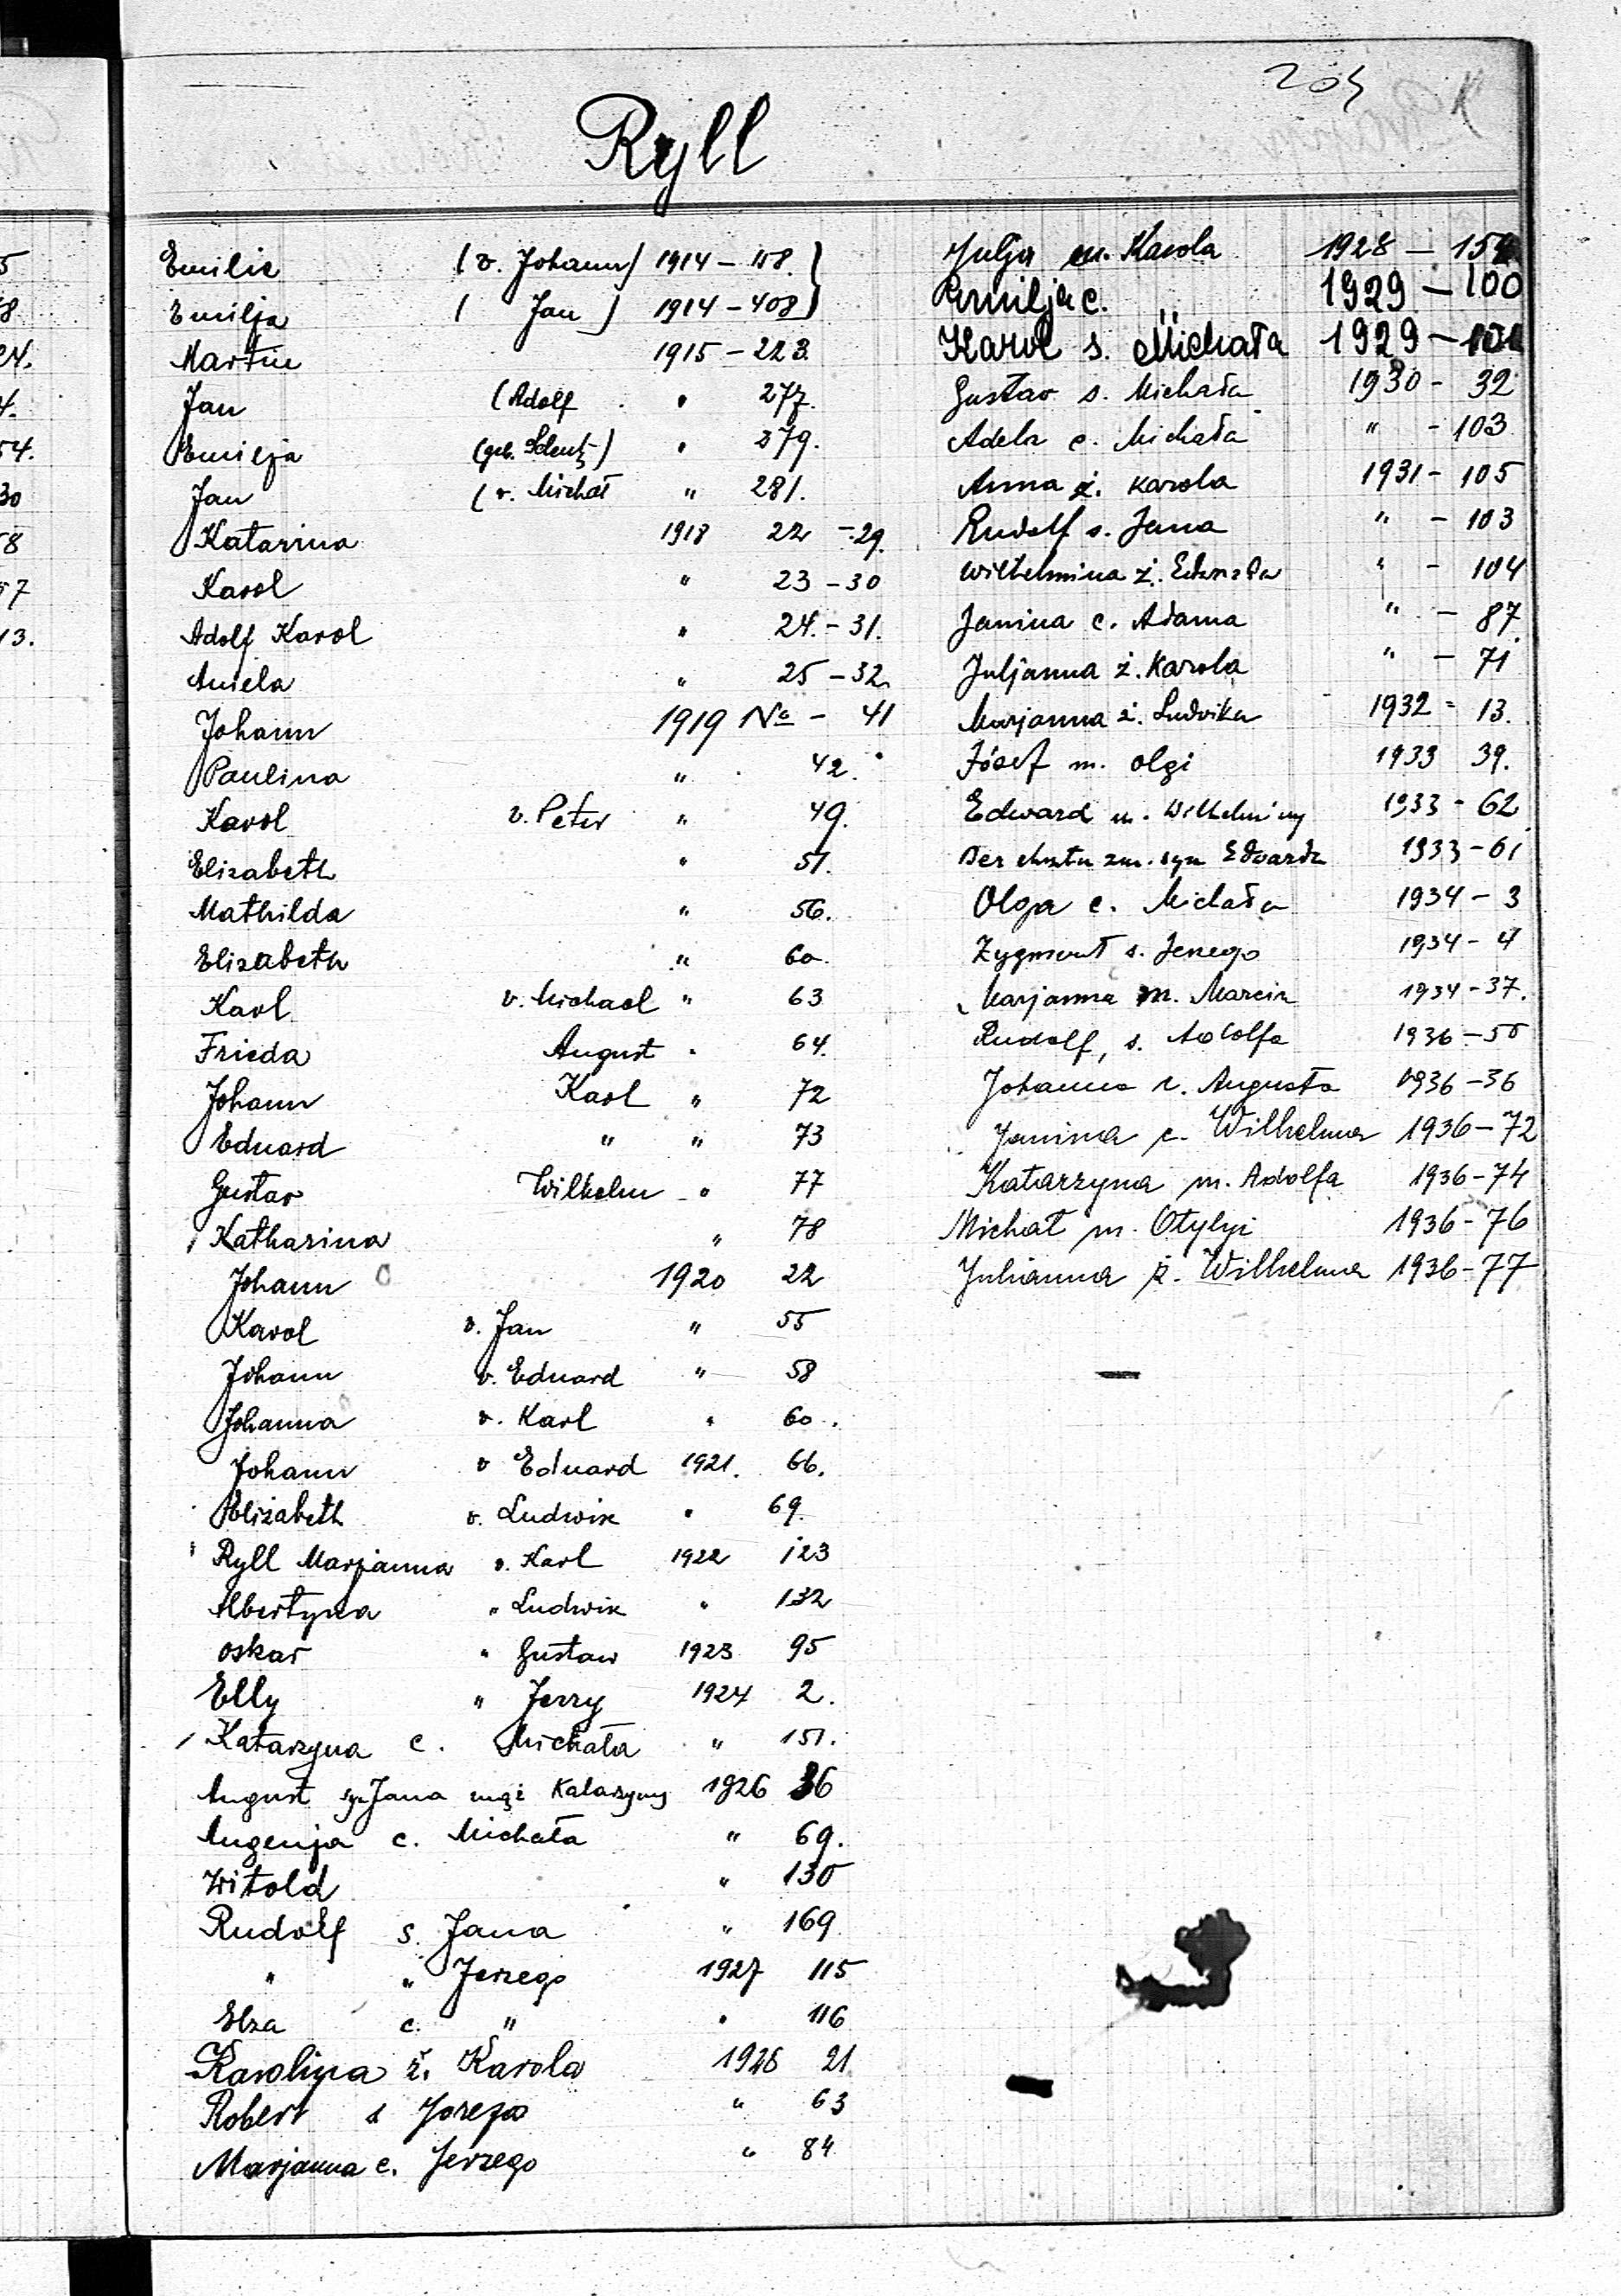 205
Ryll
Emilie (v. Johann) 1914 – 158. }
Emilja ( Jan ) 1914 – 408 }
Martin 1915 – 223.
Jan (Adolf " 277.
Emilja (geb. ) " 279.
Jan (v. Michał " 281.
Katarina 1918 22 – 29.
Karol " 23 – 30
Adolf Karol " 24. – 31.
Aniela " 25 – 32.
Johann 1919 No – 41
Paulina " 42.
Karol v. Peter " 49.
Elisabeth " 51.
Mathilda " 56.
Elizabeth " 60.
Karl v. Michael " 63
Frieda August " 64.
Johann Karl " 72
Eduard " " 73
Gustav Wilhelm " 77
Katharina " 78
Johann 1920 22
Karol v. Jan " 55
Johann v. Eduard " 58
Johanna v. Karl " 60.
Johann v Eduard 1921. 66.
Elizabeth v. Ludwik " 69.
Ryll Marjanna v. Karl 1922 123
Albertyna " Ludwik " 132
Oskar " Gustaw 1923 95
Elly " Jerzy 1924 2.
Katarzyna c. Michała " 151.
August syn Jana mąż Katarzyny 1926 36
Augenja c. Michała " 69.
Witold " 130
Rudolf s. Jana " 169
" " Jerzego 1927 115
Elza c. " " 116
Karolina ż. Karola 1928 21
Robert s " 63
Marjanna c. Jerzego " 84
Julja m. Karola 1928 – 154
Emilja c. " 1929 – 100
Karol s. Michała 1929 – 101
Gustav s. Michała 1930 – 32
Adela c. Michała " – 103
Anna ż. Karola 1931 – 105
Rudolf s. Jana " – 103
Wilhelmina ż. Edwarda " – 104
Janina c. Adama " – 87
Juljanna ż. Karola " – 71
Marjanna ż. Ludwika 1932 – 13.
Józef m. Olgi 1933 39.
Edward m. Wilhelminy 1933 – 62
Bez chrztu zm. syn Edwarda 1933 – 61
Olga c. Michała 1934 – 3
Zygmunt s. Jerzego 1934 – 4
Marjanna m. Marcin 1934 – 37.
Rudolf, s. Adolfa 1936 – 50
Johanna Augusta 1936 – 36
Janina c. Wilhelma 1936 – 72
Katarzyna m. Adolfa 1936 – 74
Michał m. Otylji 1936 – 76
Julianna ż. Wilhelma 1936 – 77
5
8
24.
4.
54.
30
58
57
13.